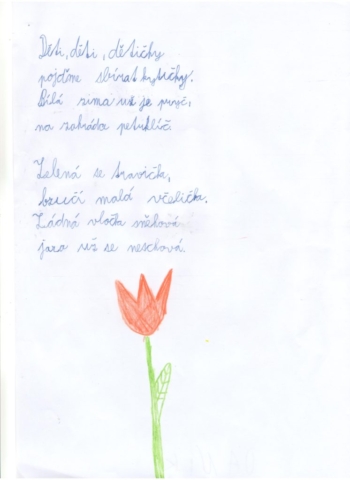 Děti, děti, dětičky
pojďme sbírat kytičky.
Bílá zima už je pryč,
na zahrádce petrklíč.
Zelená se travička,
bzučí malá včelička.
Žádná vločka sněhová
jaro už se neschová.